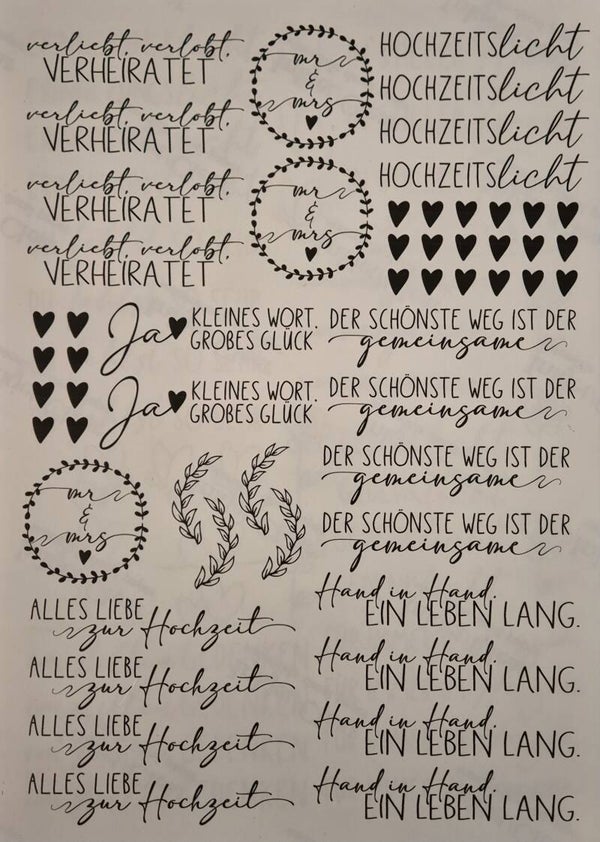 verliebt, verlobt,
VERHEIRATET
verliebt, verlobt,
VERHEIRATET
verliebt, verlobt,
VERHEIRATET
verliebt, verlobt,
VERHEIRATET
mr
&
mrs
mr
&
mrs
HOCHZEITSlicht
HOCHZEITSlicht
HOCHZEITSlicht
HOCHZEITSlicht
Ja
KLEINES WORT.
GROßES GLÜCK
Ja
KLEINES WORT.
GROßES GLÜCK
DER SCHÖNSTE WEG IST DER
gemeinsame
DER SCHÖNSTE WEG IST DER
gemeinsame
DER SCHÖNSTE WEG IST DER
gemeinsame
DER SCHÖNSTE WEG IST DER
gemeinsame
mr
&
mrs
ALLES LIEBE
zur Hochzeit
ALLES LIEBE
zur Hochzeit
ALLES LIEBE
zur Hochzeit
ALLES LIEBE
zur Hochzeit
Hand in Hand.
EIN LEBEN LANG.
Hand in Hand.
EIN LEBEN LANG.
Hand in Hand.
EIN LEBEN LANG.
Hand in Hand.
EIN LEBEN LANG.